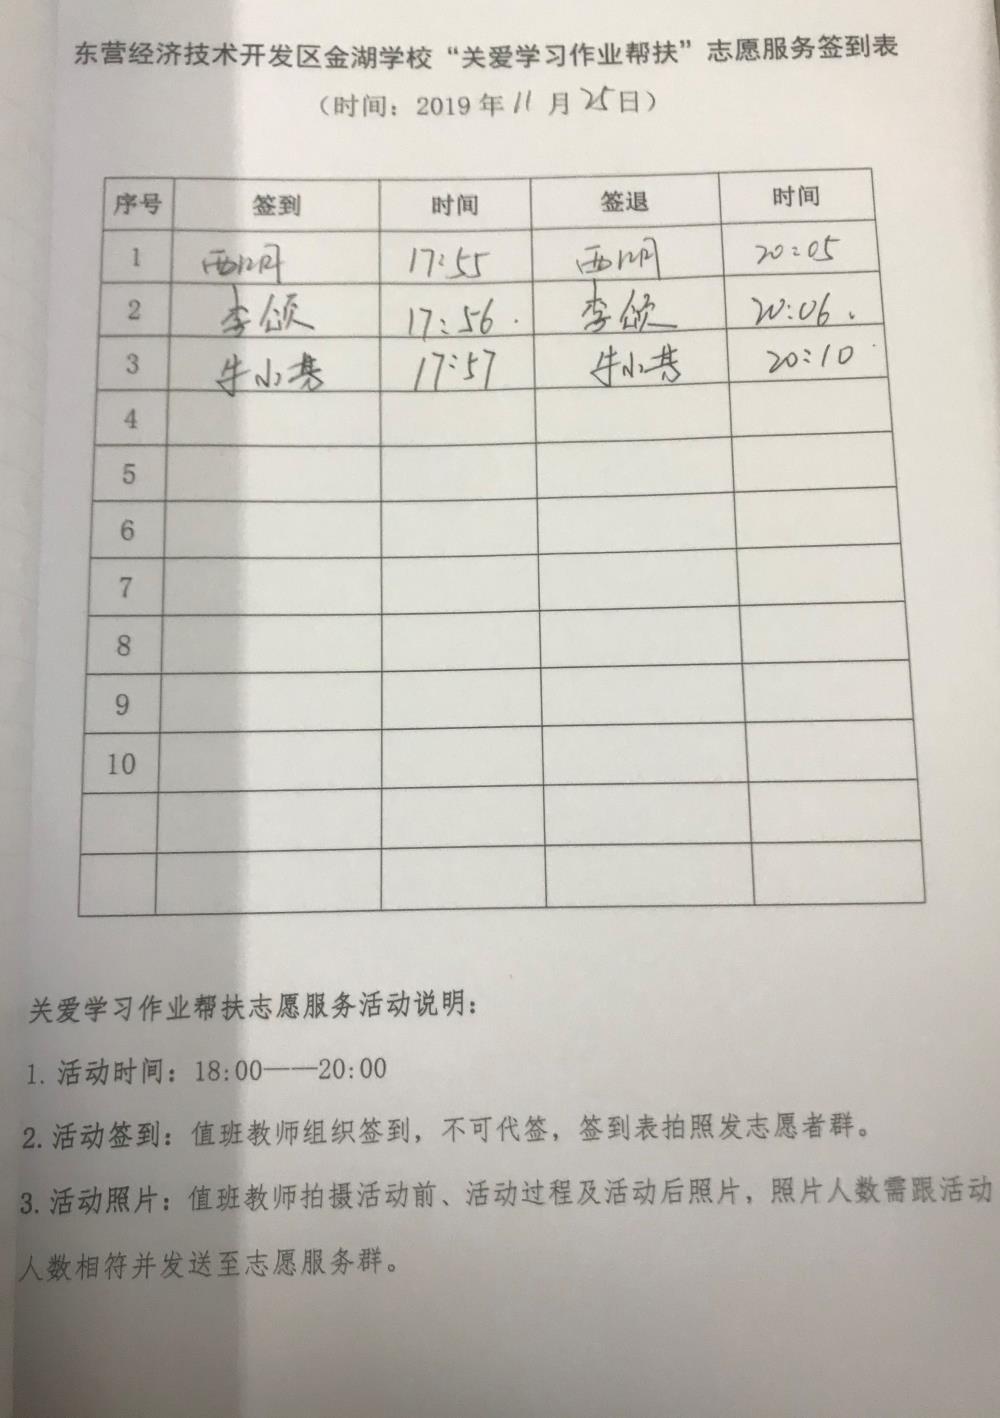 东营经济技术开发区金湖学校“关爱学习作业帮扶”志愿服务签到表
（时间：2019年11月25日）
序号 签到 时间 签退 时间
1 17:55 20:05
2 李颂 17:56. 李颂 20:06.
3 牛小 17:57 牛小 20:10
4
5
6
7
8
9
10
关爱学习作业帮扶志愿服务活动说明：
1. 活动时间：18:00——20:00
2. 活动签到：值班教师组织签到，不可代签，签到表拍照发志愿者群。
3. 活动照片：值班教师拍摄活动前、活动过程及活动后照片，照片人数需跟活动
人数相符并发送至志愿服务群。